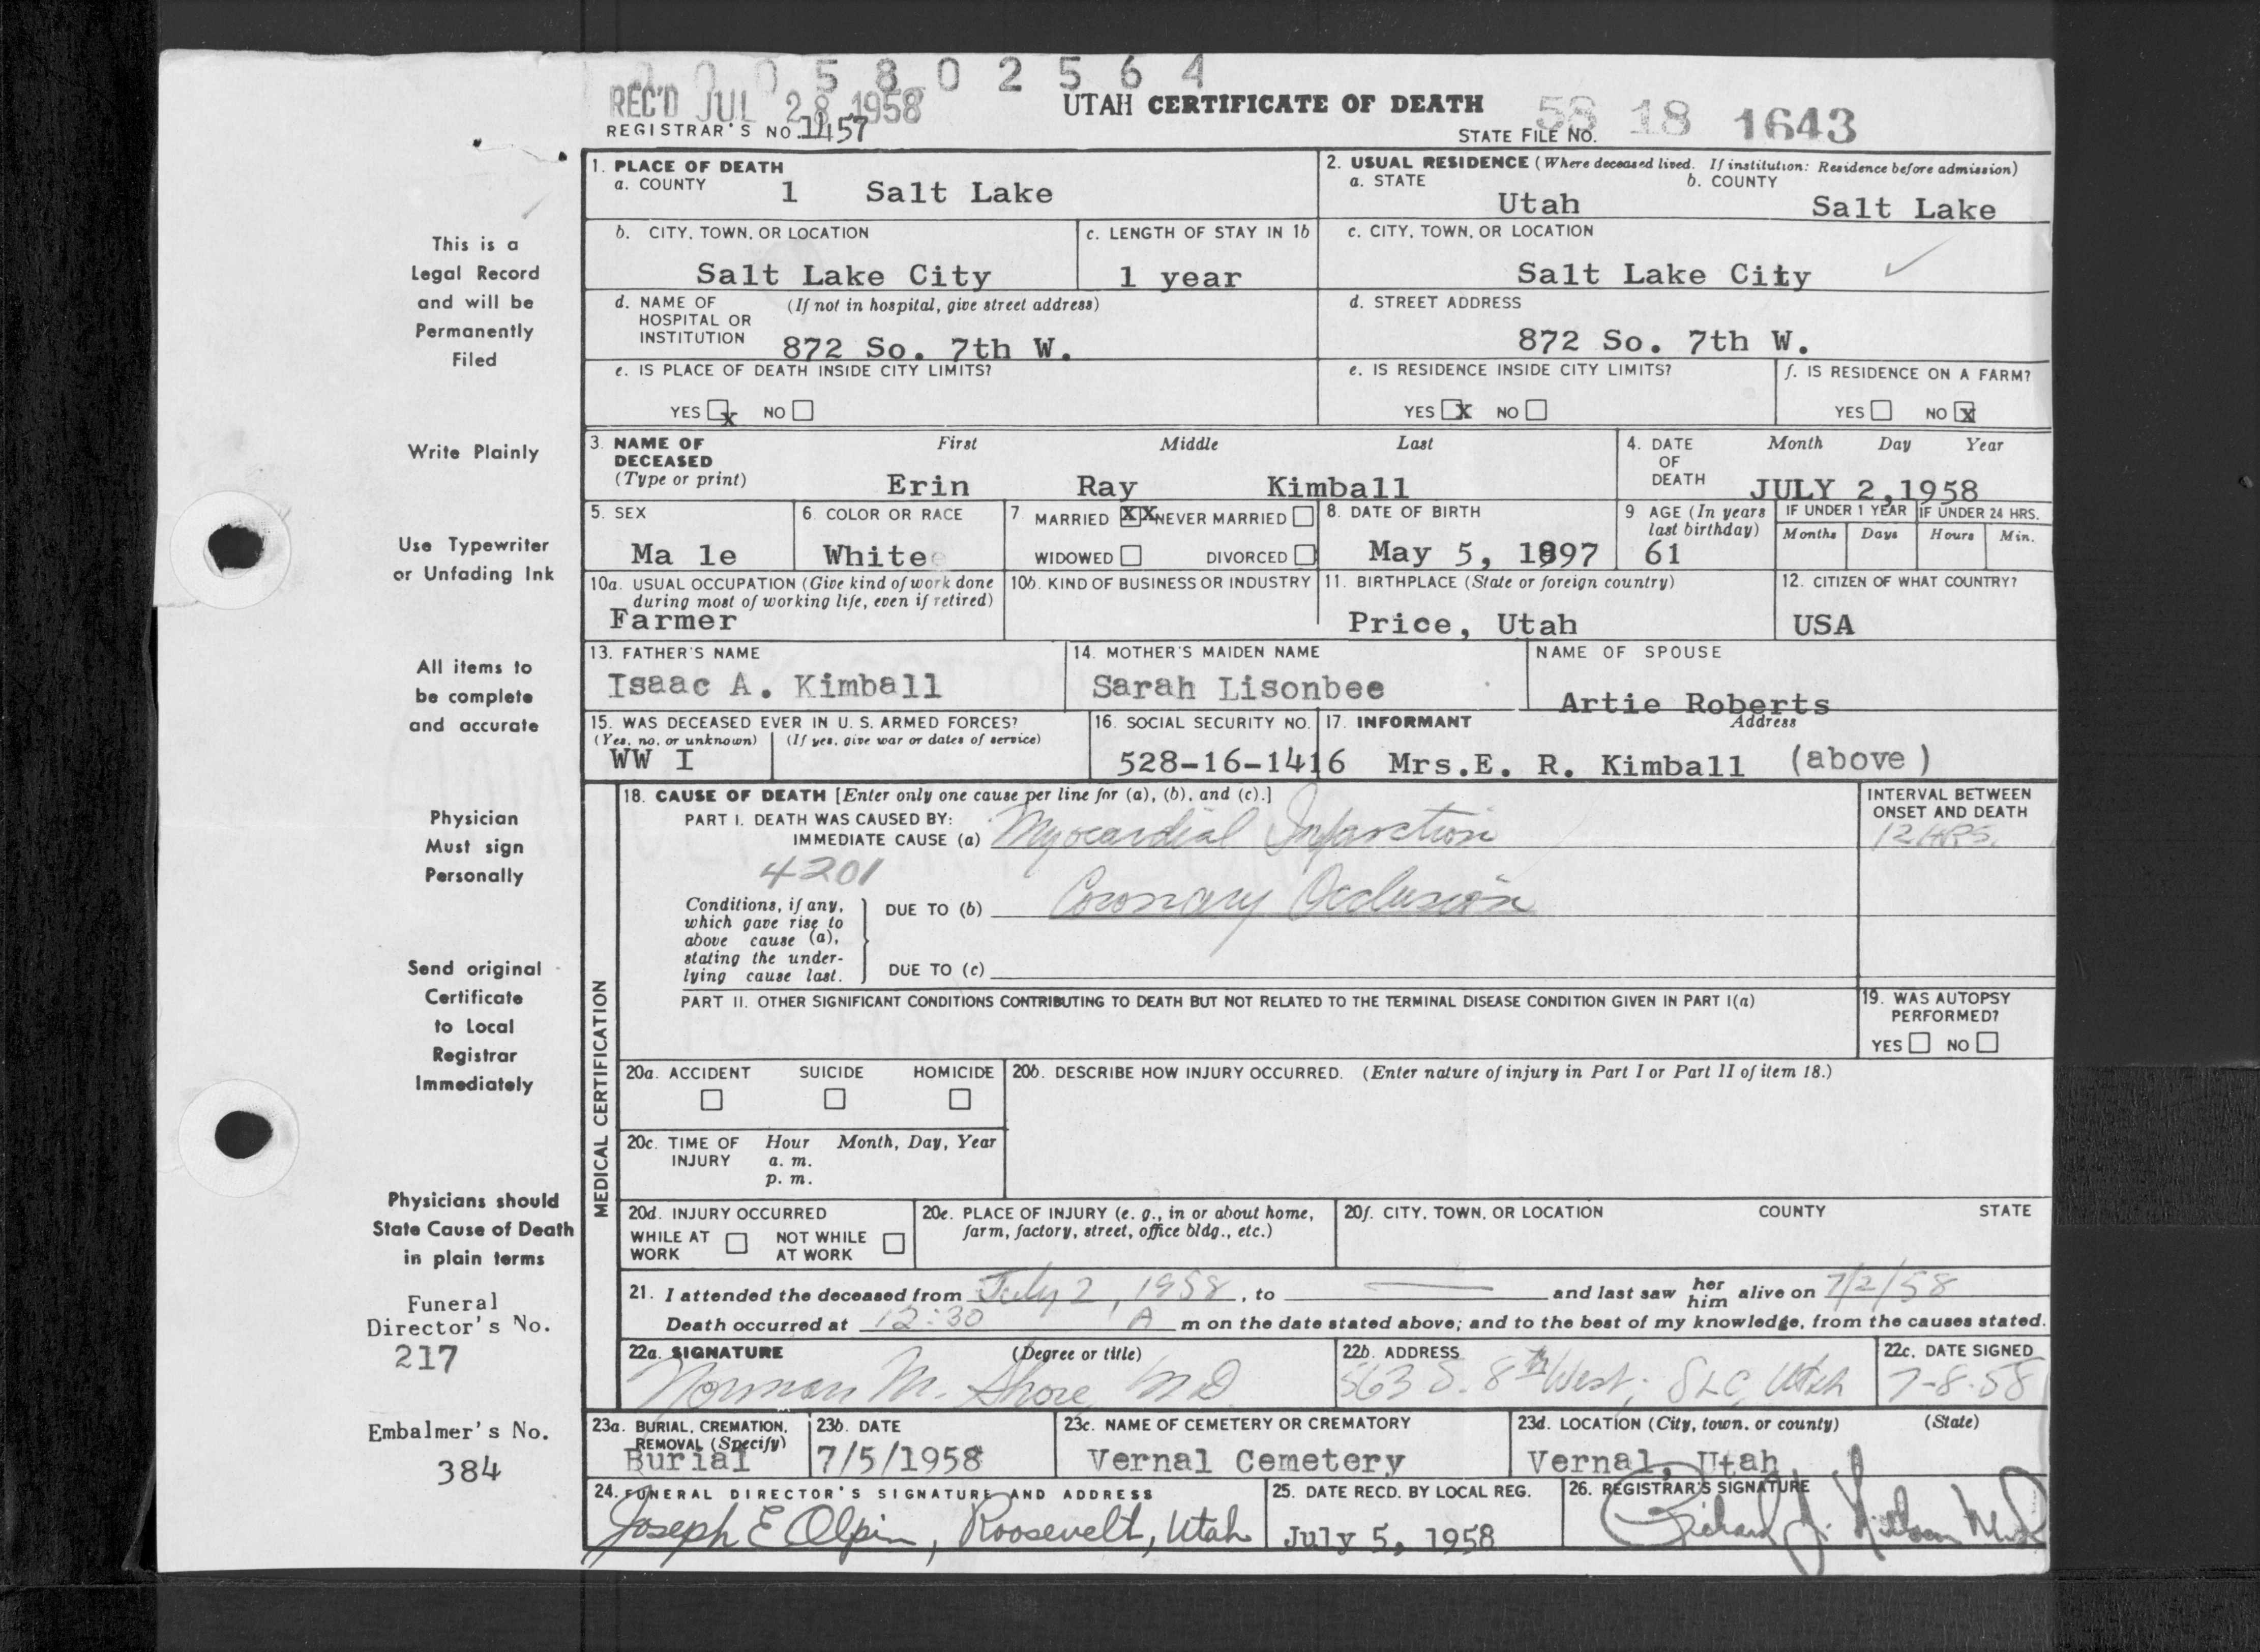 0005802564
REC'D JUL 28 1958
UTAH CERTIFICATE OF DEATH
58 18 1643
REGISTRAR'S NO. 1457
STATE FILE NO.
This is a
Legal Record
and will be
Permanently
Filed
Write Plainly
Use Typewriter
or Unfading Ink
All items to
be complete
and accurate
Physician
Must sign
Personally
Send original
Certificate
to Local
Registrar
Immediately
Physicians should
State Cause of Death
in plain terms
Funeral
Director's No.
217
Embalmer's No.
384
1. PLACE OF DEATH
a. COUNTY 1 Salt Lake
2. USUAL RESIDENCE (Where deceased lived. If institution: Residence before admission)
a. STATE Utah b. COUNTY Salt Lake
b. CITY, TOWN, OR LOCATION
Salt Lake City
c. LENGTH OF STAY IN 1b
1 year
c. CITY, TOWN, OR LOCATION
Salt Lake City
d. NAME OF (If not in hospital, give street address)
HOSPITAL OR
INSTITUTION 872 So. 7th W.
d. STREET ADDRESS
872 So. 7th W.
e. IS PLACE OF DEATH INSIDE CITY LIMITS?
YES X NO
e. IS RESIDENCE INSIDE CITY LIMITS?
YES X NO
f. IS RESIDENCE ON A FARM?
YES NO X
3. NAME OF First Middle Last
DECEASED
(Type or print) Erin Ray Kimball
4. DATE Month Day Year
OF
DEATH JULY 2,1958
5. SEX
Ma le
6. COLOR OR RACE
White
7. MARRIED XX NEVER MARRIED
WIDOWED DIVORCED
8. DATE OF BIRTH
May 5, 1897
9. AGE (In years
last birthday)
61
IF UNDER 1 YEAR IF UNDER 24 HRS.
Months Days Hours Min.
10a. USUAL OCCUPATION (Give kind of work done
during most of working life, even if retired)
Farmer
10b. KIND OF BUSINESS OR INDUSTRY
11. BIRTHPLACE (State or foreign country)
Price, Utah
12. CITIZEN OF WHAT COUNTRY?
USA
13. FATHER'S NAME
Isaac A. Kimball
14. MOTHER'S MAIDEN NAME
Sarah Lisonbee
NAME OF SPOUSE
Artie Roberts
15. WAS DECEASED EVER IN U. S. ARMED FORCES?
(Yes, no, or unknown) (If yes, give war or dates of service)
WW I
16. SOCIAL SECURITY NO.
528-16-1416
17. INFORMANT Address
Mrs.E. R. Kimball (above)
MEDICAL CERTIFICATION
18. CAUSE OF DEATH [Enter only one cause per line for (a), (b), and (c).]
PART I. DEATH WAS CAUSED BY:
IMMEDIATE CAUSE (a) Myocardial Infarction
INTERVAL BETWEEN
ONSET AND DEATH
12 HRS.
4201
Conditions, if any,
which gave rise to
above cause (a),
stating the under-
lying cause last.
DUE TO (b) Coronary Occlusion
DUE TO (c)
PART II. OTHER SIGNIFICANT CONDITIONS CONTRIBUTING TO DEATH BUT NOT RELATED TO THE TERMINAL DISEASE CONDITION GIVEN IN PART I(a)
19. WAS AUTOPSY
PERFORMED?
YES NO
20a. ACCIDENT SUICIDE HOMICIDE
20b. DESCRIBE HOW INJURY OCCURRED. (Enter nature of injury in Part I or Part II of item 18.)
20c. TIME OF Hour Month, Day, Year
INJURY a. m.
p. m.
20d. INJURY OCCURRED
WHILE AT NOT WHILE
WORK AT WORK
20e. PLACE OF INJURY (e. g., in or about home,
farm, factory, street, office bldg., etc.)
20f. CITY, TOWN, OR LOCATION COUNTY STATE
21. I attended the deceased from July 2, 1958, to and last saw her him alive on 7/2/58
Death occurred at 12:30 A m on the date stated above; and to the best of my knowledge, from the causes stated.
22a. SIGNATURE (Degree or title)
Norman M. Shore MD
22b. ADDRESS
563 S. 8th West; SLC, Utah
22c. DATE SIGNED
7-8-58
23a. BURIAL, CREMATION,
REMOVAL (Specify)
Burial
23b. DATE
7/5/1958
23c. NAME OF CEMETERY OR CREMATORY
Vernal Cemetery
23d. LOCATION (City, town, or county) (State)
Vernal, Utah
24. FUNERAL DIRECTOR'S SIGNATURE AND ADDRESS
Joseph E Olpin, Roosevelt, Utah
25. DATE RECD. BY LOCAL REG.
July 5, 1958
26. REGISTRAR'S SIGNATURE
Richard